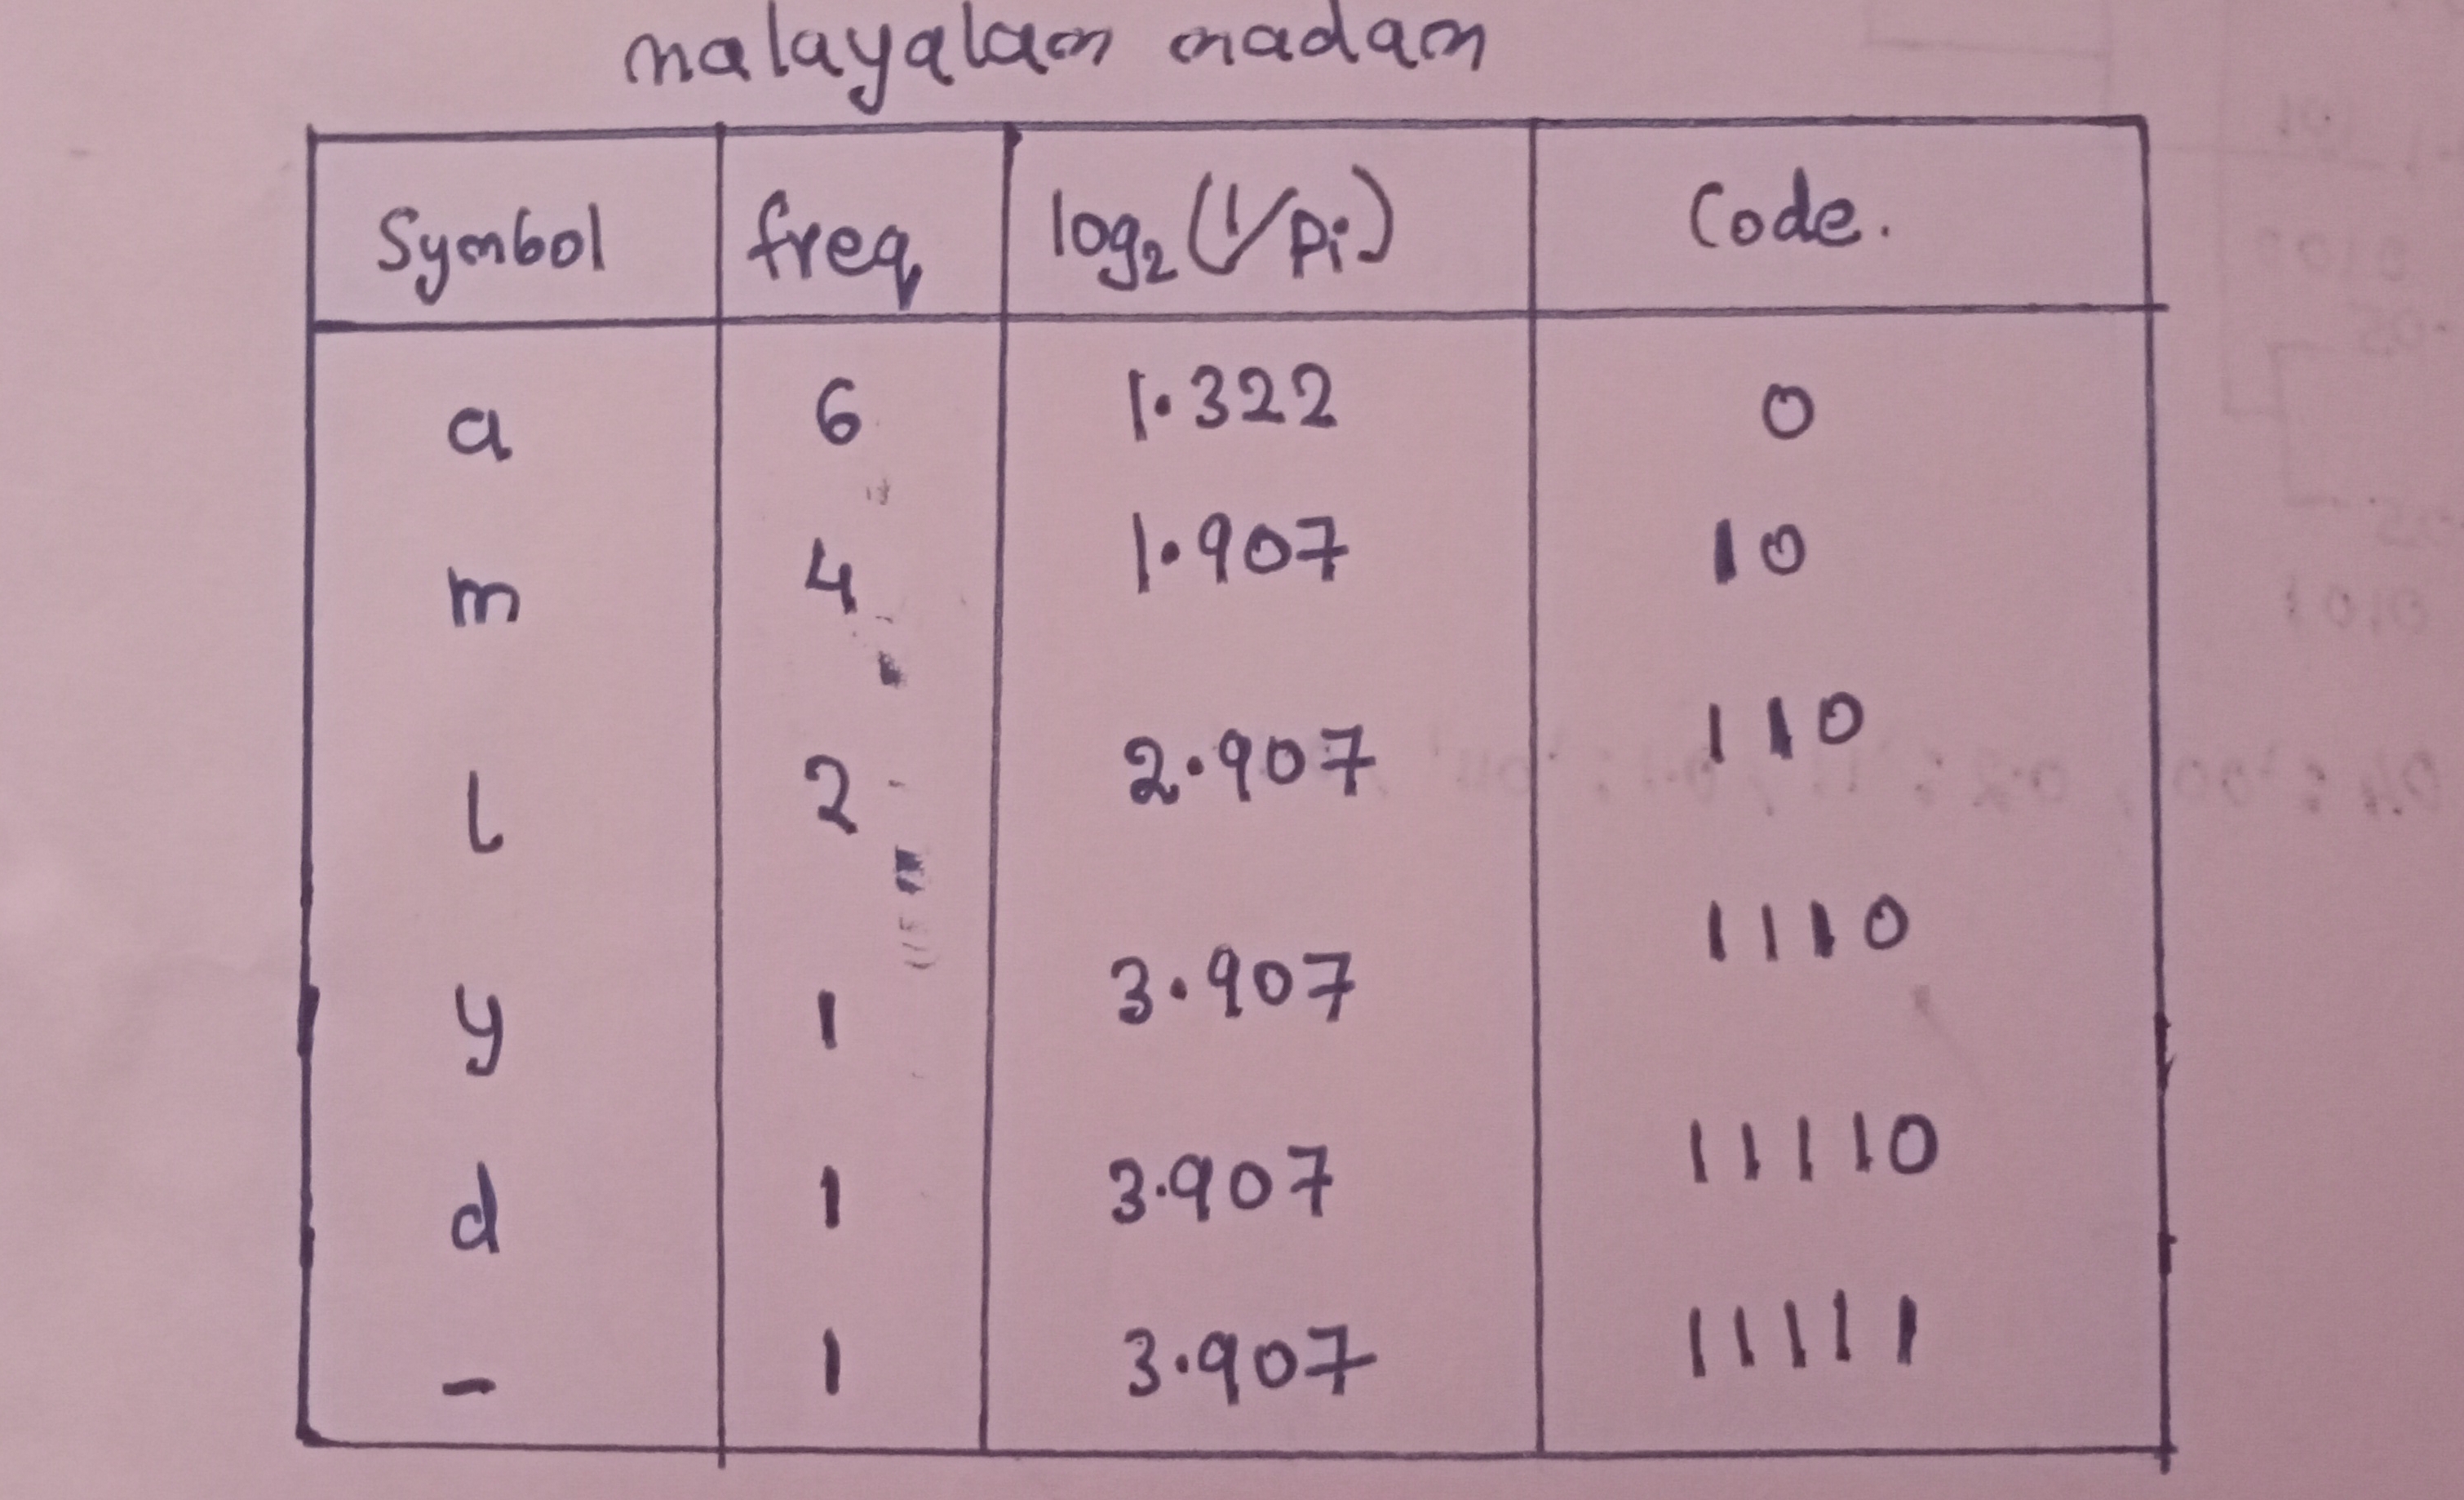 malayalam madam
Symbol freq log₂(1/Pi) Code.
a 6 1.322 0
m 4 1.907 10
l 2 2.907 110
y 1 3.907 1110
d 1 3.907 11110
- 1 3.907 11111